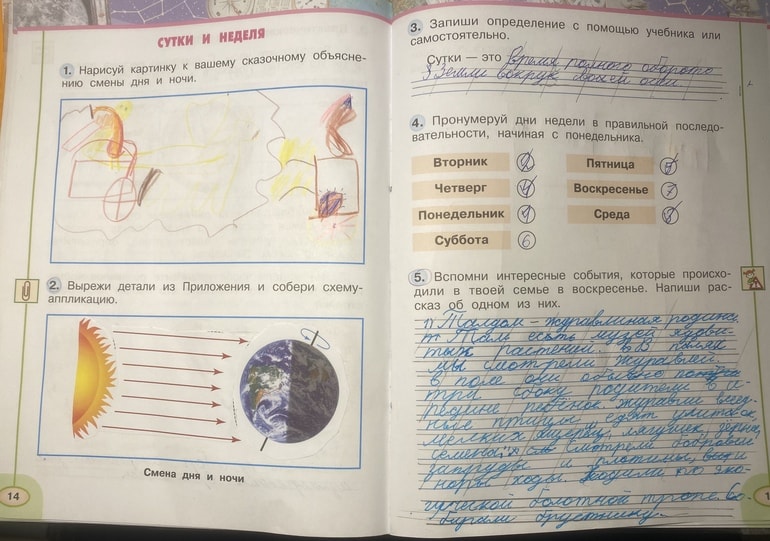 СУТКИ И НЕДЕЛЯ
1. Нарисуй картинку к вашему сказочному объясне-
нию смены дня и ночи.
2. Вырежи детали из Приложения и собери схему-
аппликацию.
Смена дня и ночи
14
3. Запиши определение с помощью учебника или
самостоятельно.
Сутки — это время полного оборота
Земли вокруг своей оси
4. Пронумеруй дни недели в правильной последо-
вательности, начиная с понедельника.
Вторник 2 Пятница 5
Четверг 4 Воскресенье 7
Понедельник 1 Среда 3
Суббота 6
5. Вспомни интересные события, которые происхо-
дили в твоей семье в воскресенье. Напиши рас-
сказ об одном из них.
Талдом - журавлиная родина
есть музей ядови-
тых растений. В
мы смотрели журавлей.
в поле они обычно
три сбоку родители в се-
редине ребёнок журавли всеяд-
ные птицы едят улиток
мелких ящериц, лягушек, зёрна,
семена. смотрели бобровые
запруды и плотины,
норы ходы. Ходили по эко-
гической болотной тропе. Со-
бирали бруснику.